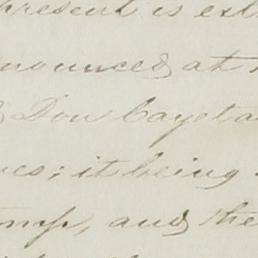 present is ext
nounced at
Don Cayeta
es; it being
mp, and the